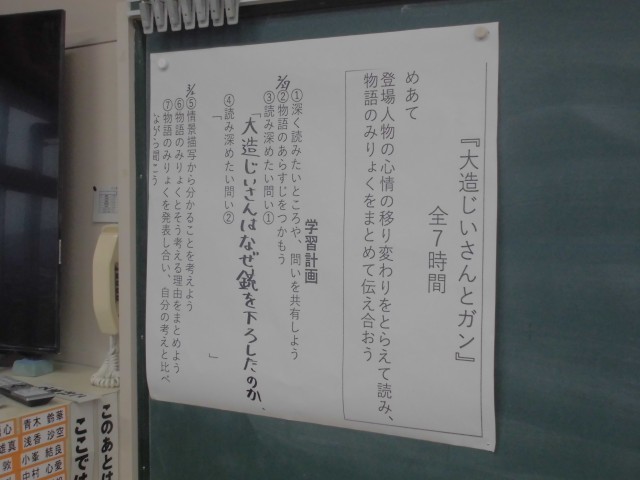 『大造じいさんとガン』
全７時間
めあて
登場人物の心情の移り変わりをとらえて読み、
物語のみりょくをまとめて伝え合おう
学習計画
①深く読みたいところや、問いを共有しよう
②物語のあらすじをつかもう
③読み深めたい問い①
「大造じいさんはなぜ銃を下ろしたのか、
④読み深めたい問い②
「　　　　」
⑤情景描写から分かることを考えよう
⑥物語のみりょくとそう考える理由をまとめよう
⑦物語のみりょくを発表し合い、自分の考えと比べ
ながら聞こう
このあとは
ここでは
青木 鈴華
浅香 沙空
小峯 結良
中村 心愛